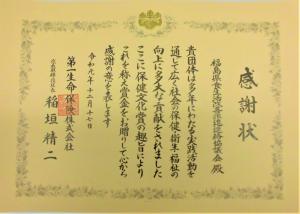 感謝状
福島県食生活改善推進連絡協議会殿
貴団体は多年にわたる実践活動を
通して広く社会の保健・衛生・福祉の
向上に多大な貢献をされました
ここに保健文化賞の趣旨により
これを称え賞金をお贈りして心から
感謝の意を表します
令和元年十二月十七日
第一生命保険株式会社
代表取締役社長 稲垣精二